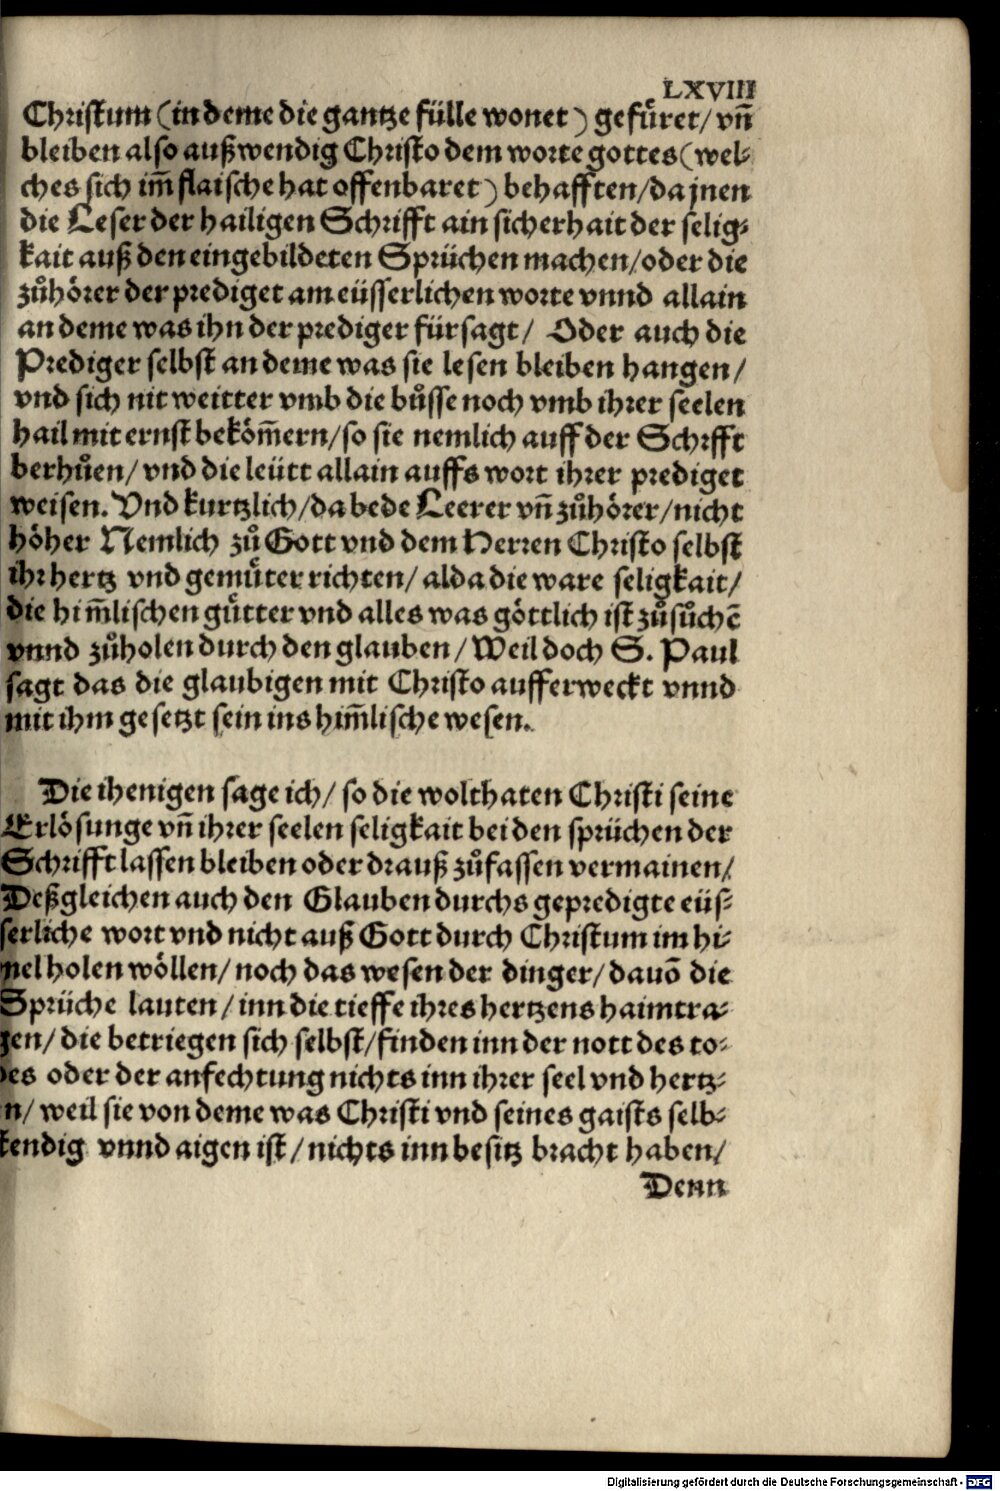 LXVIII
Christum (in deme die gantze fülle wonet) gefuͤret / vñ
bleiben also außwendig Christo dem worte gottes (wel-
ches sich im̄ flaische hat offenbaret) behafften / da jnen
die Leser der hailigen Schrifft ain sicherhait der selig-
kait auß den eingebildeten Sprüchen machen / oder die
zuͦhörer der prediget am eüsserlichen worte vnnd allain
an deme was ihn der prediger fürsagt / Oder auch die
Prediger selbst an deme was sie lesen bleiben hangen /
vnd sich nit weitter vmb die buͦsse noch vmb ihrer seelen
hail mit ernst bekom̄ern / so sie nemlich auff der Schrifft
berhuͦen / vnd die leütt allain auffs wort ihrer prediget
weisen. Vnd kurtzlich / da bede Leerer vñ zuͦhörer / nicht
höher Nemlich zuͦ Gott vnd dem Herren Christo selbst
ihr hertz vnd gemuͤter richten / alda die ware seligkait /
die him̄lischen guͤtter vnd alles was göttlich ist zuͦsuͦchē
vnnd zuͦholen durch den glauben / Weil doch S. Paul
sagt das die glaubigen mit Christo aufferweckt vnnd
mit ihm gesetzt sein ins him̄lische wesen.
Die ihenigen sage ich / so die wolthaten Christi seine
Erlösunge vñ ihrer seelen seligkait bei den sprüchen der
Schrifft lassen bleiben oder drauß zuͦfassen vermainen /
Deßgleichen auch den Glauben durchs gepredigte eüs-
serliche wort vnd nicht auß Gott durch Christum im hi-
mel holen wöllen / noch das wesen der dinger / dauō die
Sprüche lauten / inn die tieffe ihres hertzens haimtra-
gen / die betriegen sich selbst / finden inn der nott des to-
des oder der anfechtung nichts inn ihrer seel vnd hertz-
n / weil sie von deme was Christi vnd seines gaists selb-
stendig vnnd aigen ist / nichts inn besitz bracht haben /
Denn
Digitalisierung gefördert durch die Deutsche Forschungsgemeinschaft - DFG